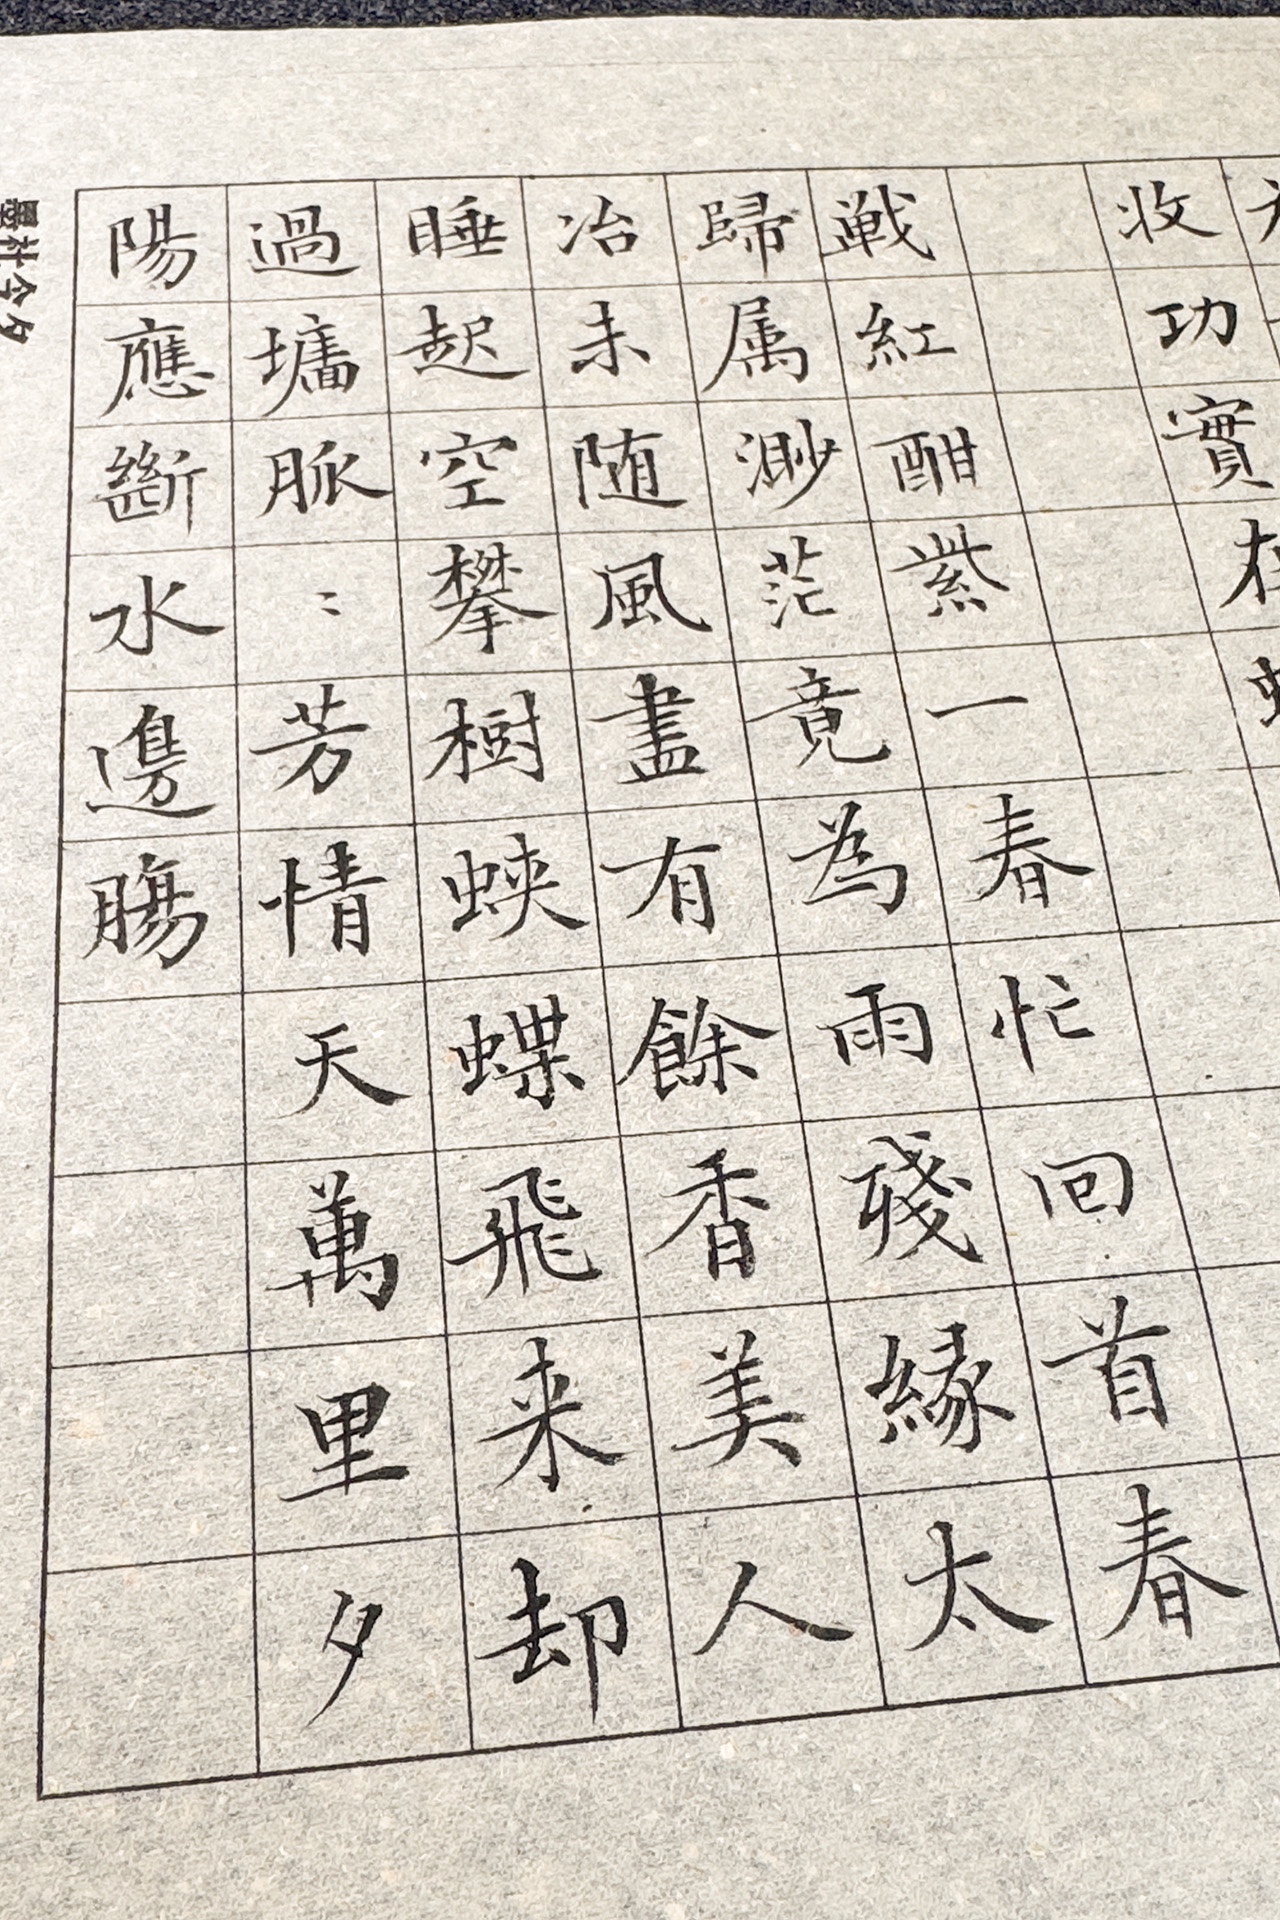 收功實在
戦紅酣紫一春忙回首春
歸属渺茫竟為雨殘緣太
冶未随風盡有餘香美人
睡起空攀樹蛺蝶飛来却
過墻脈〻芳情天萬里夕
陽應斷水邊腸
墨社今夕